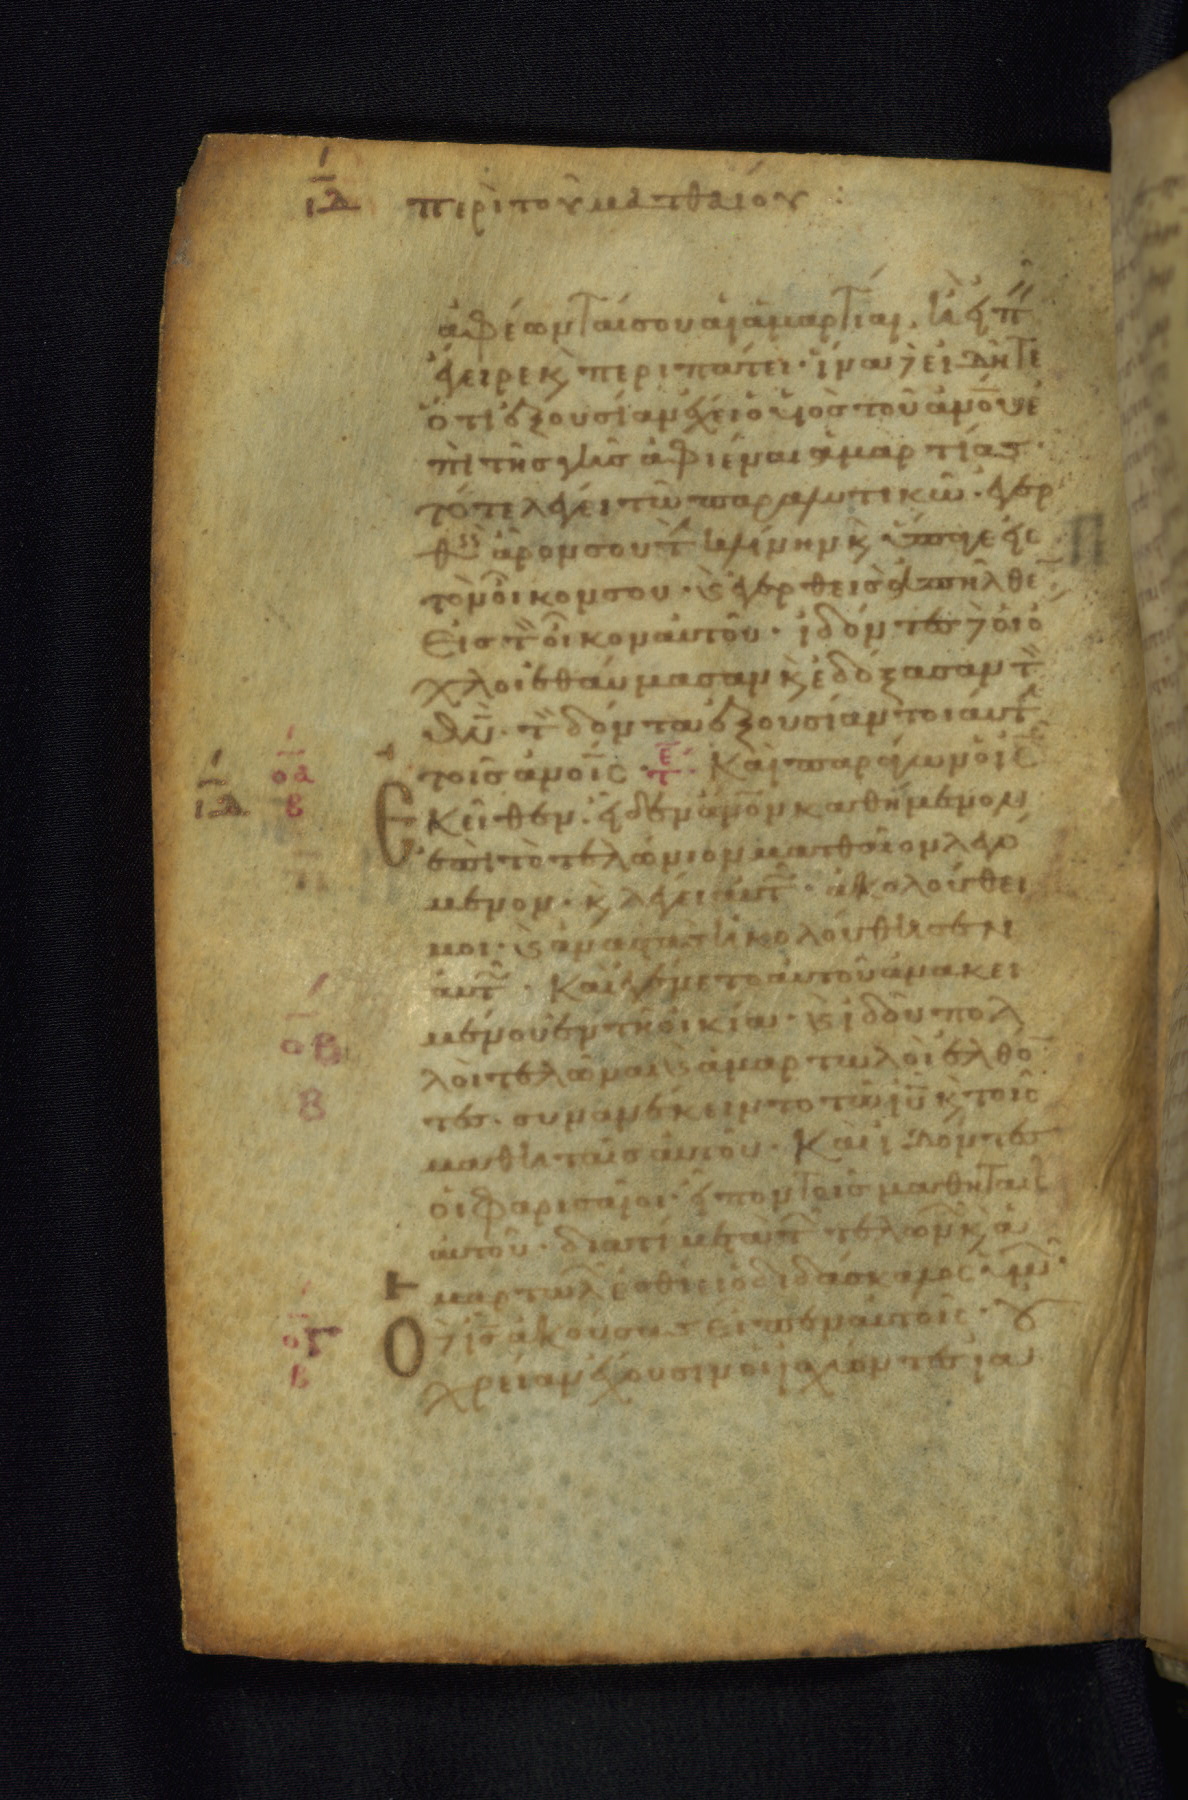 ΙΔ περὶ τοῦ ματθαίου :
ἀφέωνταί σου αἱ ἁμαρτίαι, ἢ εἰπ
ἔγειρε κ περιπάτει · ἵνα δὲ εἰδῆτε
ὅτι ἐξουσίαν ἔχει ὁ υἱὸς τοῦ ἀνου ἐ
πὶ τῆς γῆς ἀφιέναι ἁμαρτίας ·
τότε λέγει τῶ παραλυτικῶ · ἐγερ
θεὶς ἆρόν σου τ κλίνην κ ὕπαγε εἰς
τὸν οἶκόν σου · κ ἐγερθεὶς ἀπῆλθε
εἰς τ οἶκον αὐτοῦ · ἰδόντες δὲ οἱ ὄ
χλοι ἐθαύμασαν κ ἐδόξασαν τ
θν · τ δόντα ἐξουσίαν τοιαύτ
τοῖς ἀνοις · τε · Καὶ παράγων ὁ ις ἐ
κεῖθεν · εἶδεν ανον καθήμενον
ἐπὶ τὸ τελώνιον ματθαῖον λεγό
μενον · κ λέγει αὐτ · ἀκολούθει
μοι · κ ἀναστὰς ἠκολούθησεν
αὐτ · Καὶ ἐγένετο αὐτοῦ ἀνακει
μένου ἐν τῆ οἰκία · κ ἰδοὺ πολ
λοὶ τελῶναι κ ἁμαρτωλοὶ ἐλθό
τες · συνανέκειντο τῶ ιυ κ τοῖς
μαθηταῖς αὐτοῦ · Καὶ ἰδόντες
οἱ φαρισαῖοι · εἶπον τοῖς μαθηταῖς
αὐτοῦ · διατί μετὰ τ τελων κ ἁ
μαρτωλ ἐσθίει ὁ διδάσκαλος ὑμ ·
Ὁ δὲ ις ἀκούσας εἶπεν αὐτοῖς · οὐ
χρείαν ἔχουσιν οἱ ἰσχύοντες ἰα
οα
β
ΙΔ
οβ
β
ογ
β